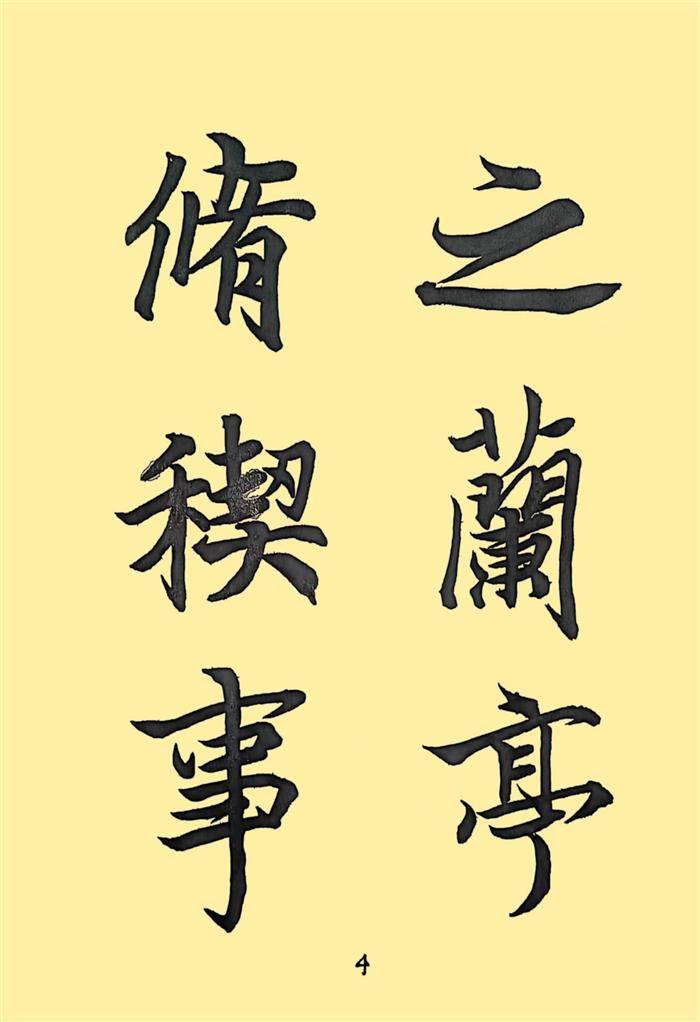 之蘭亭
脩稧事
4